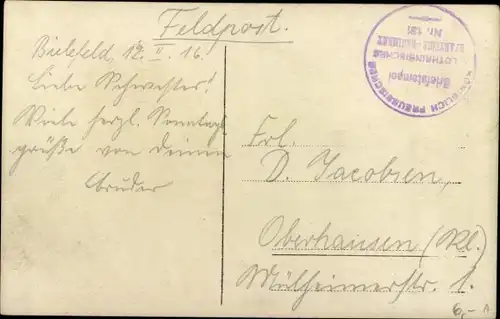 Feldpost.
Bielefeld, 12. II. 16.
Liebe Schwester!
Viele herzl. Sonntags
grüße von deinem
Bruder
Frl.
D. Jacobsen,
Oberhausen (Rl.)
Mülheimerstr. 1.
KÖNIGLICH PREUSSISCHES
LOTHRINGISCHES
Nr. 131
Briefstempel
6,-